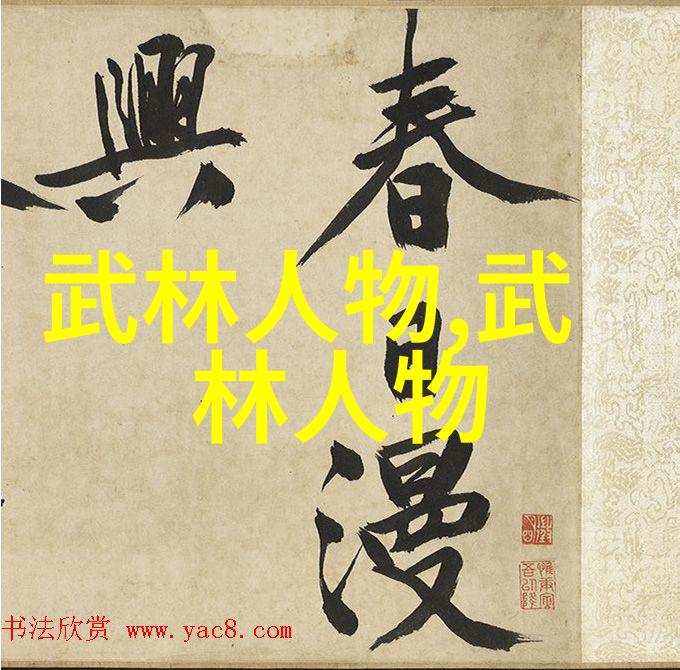 春日漫
興
武林人物,武
林人物
书法欣赏 www.yac8.com